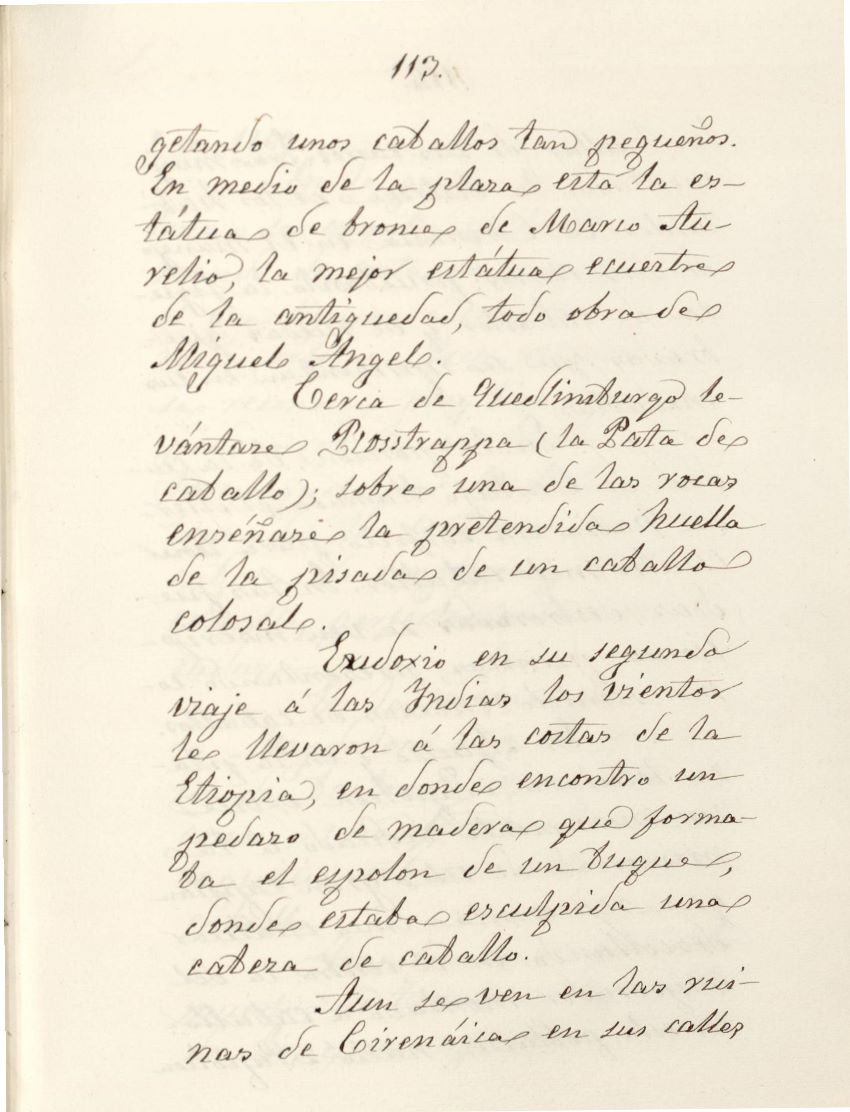 113.
getando unos caballos tan pequeños.
En medio de la plaza está la es-
tátua de bronce de Marco Au-
relio, la mejor estátua ecuestre
de la antiguedad, todo obra de
Miguel Angel.
Cerca de Quedlimburgo le-
vántase Rosstrappa (la Pata de
caballo); sobre una de las rocas
enséñase la pretendida huella
de la pisada de un caballo
colosal.
Eudoxio en su segundo
viaje á las Indias los vientos
le llevaron á las costas de la
Etiopia, en donde encontro un
pedazo de madera que forma-
ba el espolon de un buque,
donde estaba esculpida una
cabeza de caballo.
Aun se ven en las rui-
nas de Cirenáica en sus calles